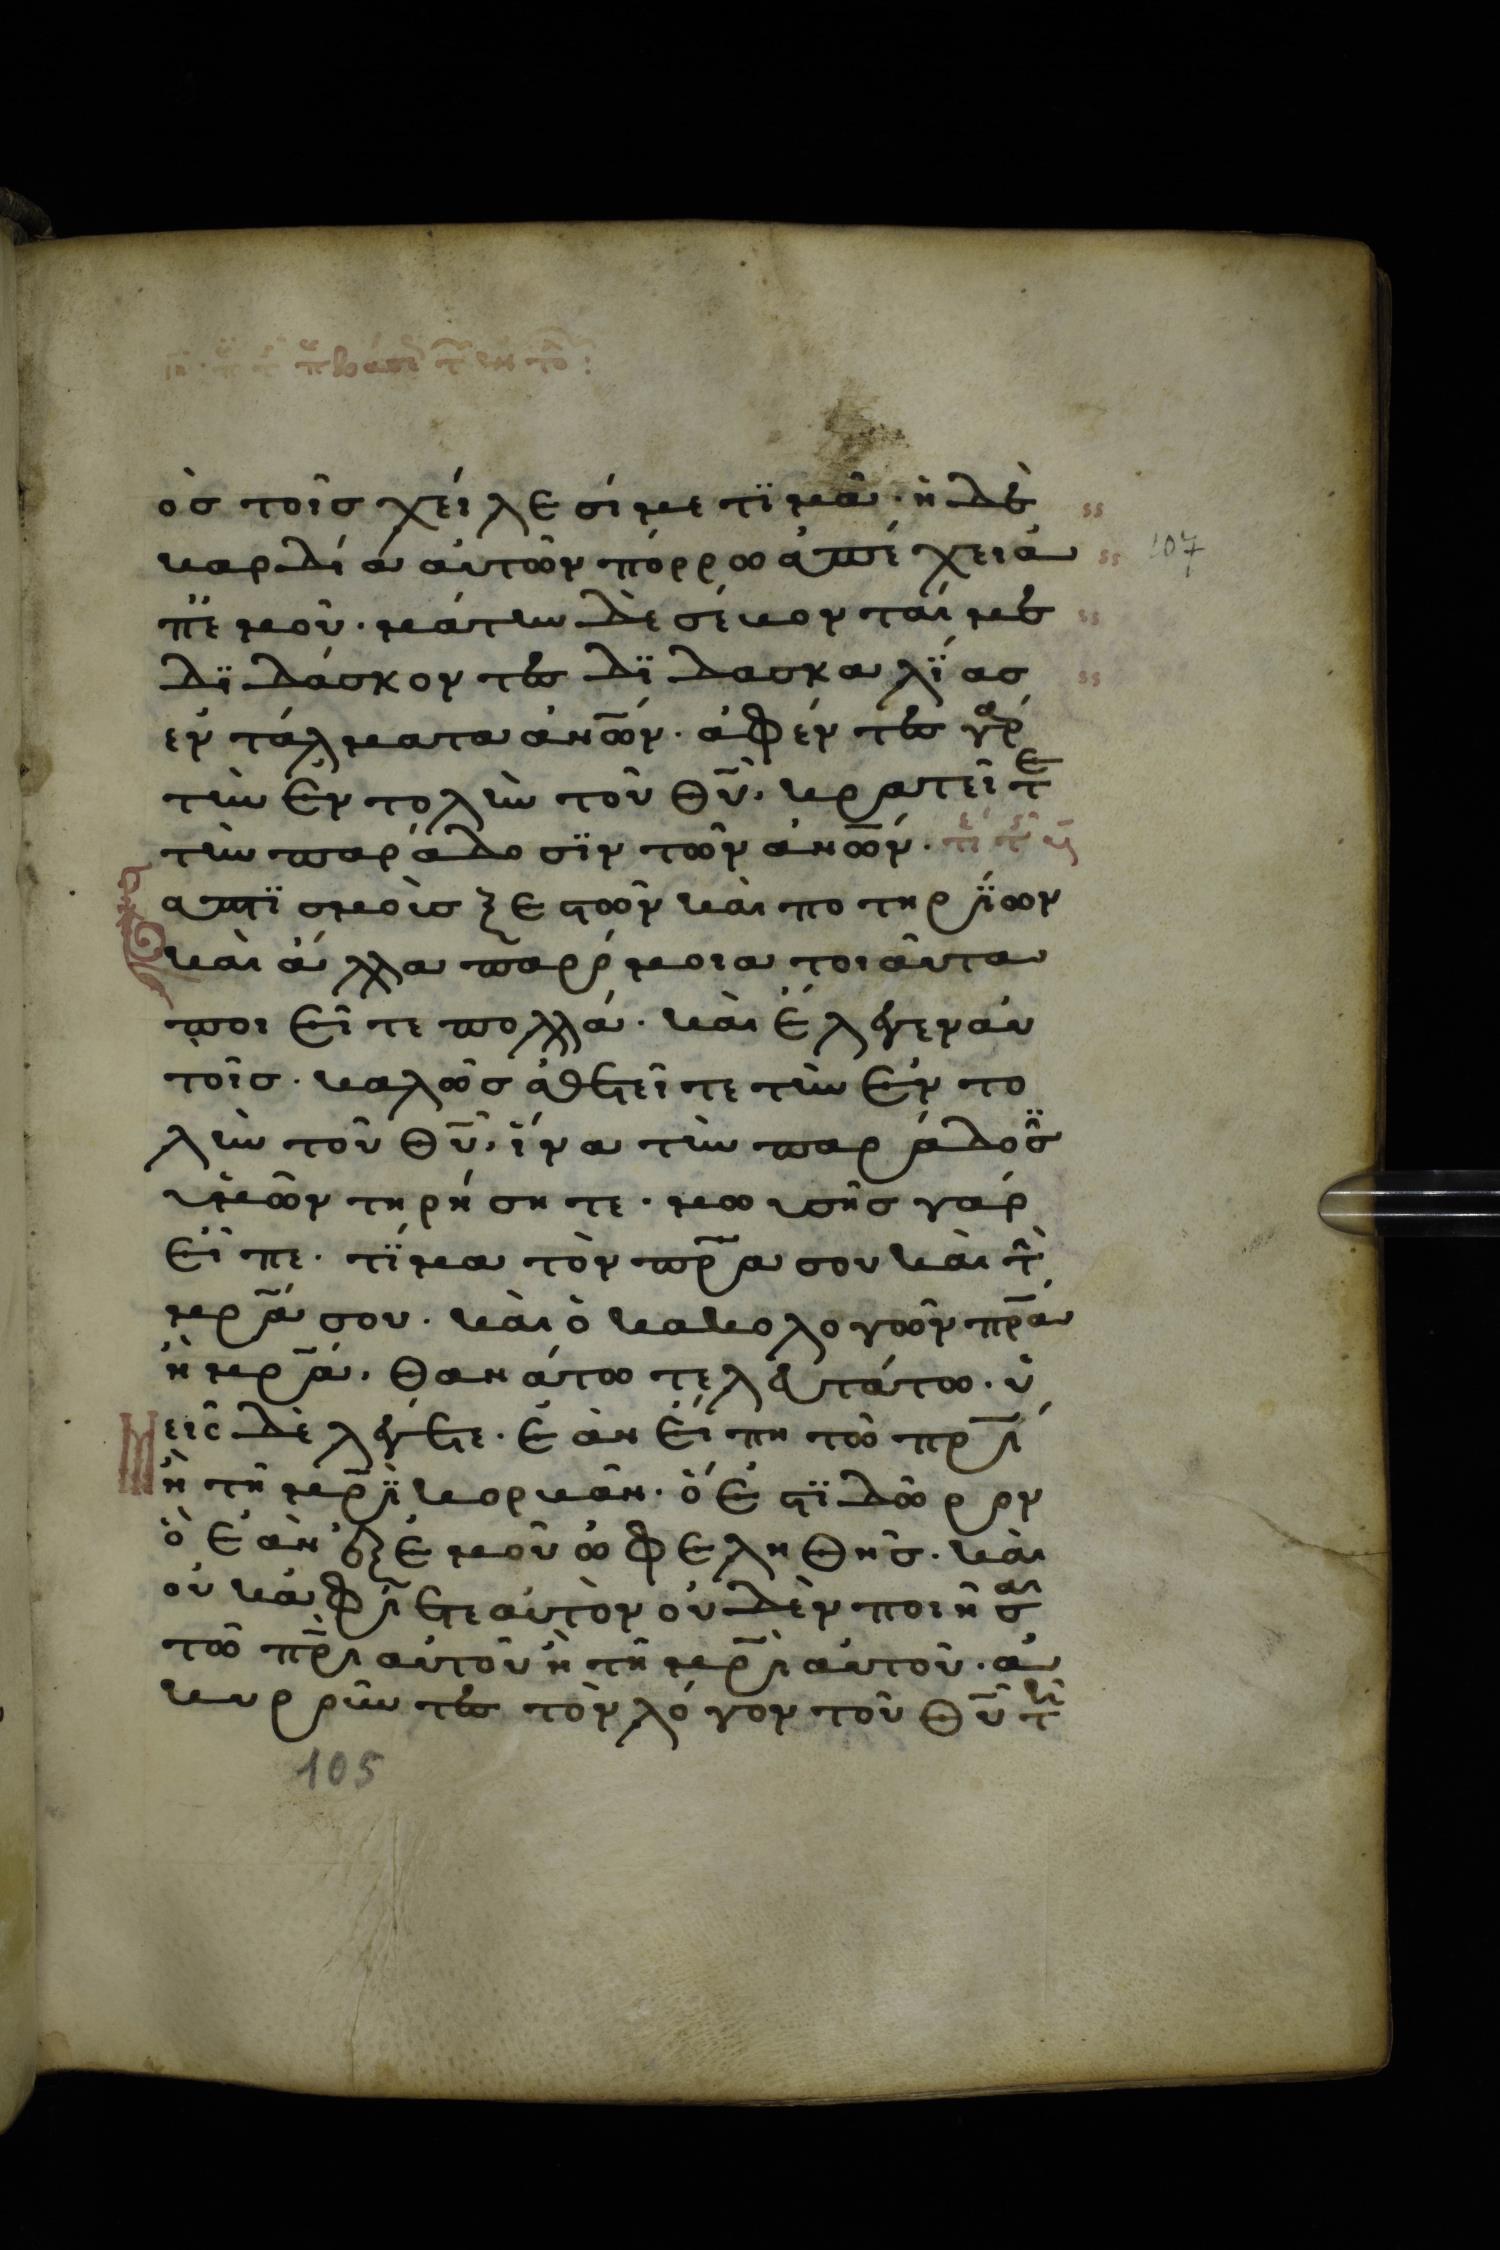 ὁσ τοῖσ χείλεσί με τϊμᾶ· ἡ δὲ
καρδία αὐτῶν πόρρω ἀπέχει ἀ
π' ἐμοῦ· μάτην δὲ σέβονταί με
δϊδάσκοντεσ δϊδασκαλΐασ
ἐντάλματα ἀν̅ων· ἀφέντεσ γὰρ
τὴν ἐντολὴν τοῦ θ̅υ, κρατεῖτε
τὴν παράδοσϊν τῶν ἀν̅ων·
βαπτϊσμοὺσ ξεστῶν καὶ ποτηρΐων
καὶ ἄλλα παρόμοια τοιαῦτα
ποιεῖτε πολλά· καὶ ἔλεγεν αὐ
τοῖσ· καλῶσ ἀθετεῖτε τὴν ἐντο
λὴν τοῦ θ̅υ, ἵνα τὴν παράδοσϊν
ὑμῶν τηρήσητε· μωυσῆσ γὰρ
εἶπε· τΐμα τὸν π̅ρα σου καὶ τὴν
μ̅ρα σου· καὶ ὁ κακολογῶν π̅ρα
ἢ μ̅ρα, θανάτω τελευτάτω· ὑ
μεῖσ δὲ λέγετε· ἐὰν εἴπη τῶ π̅ρι
ἢ τῆ μ̅ρϊ κορβᾶν· ὅ ἐστϊ δῶρον
ὃ ἐὰν ἐξ ἐμοῦ ὠφεληθῆσ· καὶ
οὐκ ἀφΐετε αὐτὸν οὐδὲν ποιῆσαι
τῶ π̅ρι αὐτοῦ ἢ τῆ μ̅ρι αὐτοῦ· ἀ
κυροῦντεσ τὸν λόγον τοῦ θ̅υ τῆ
107
105